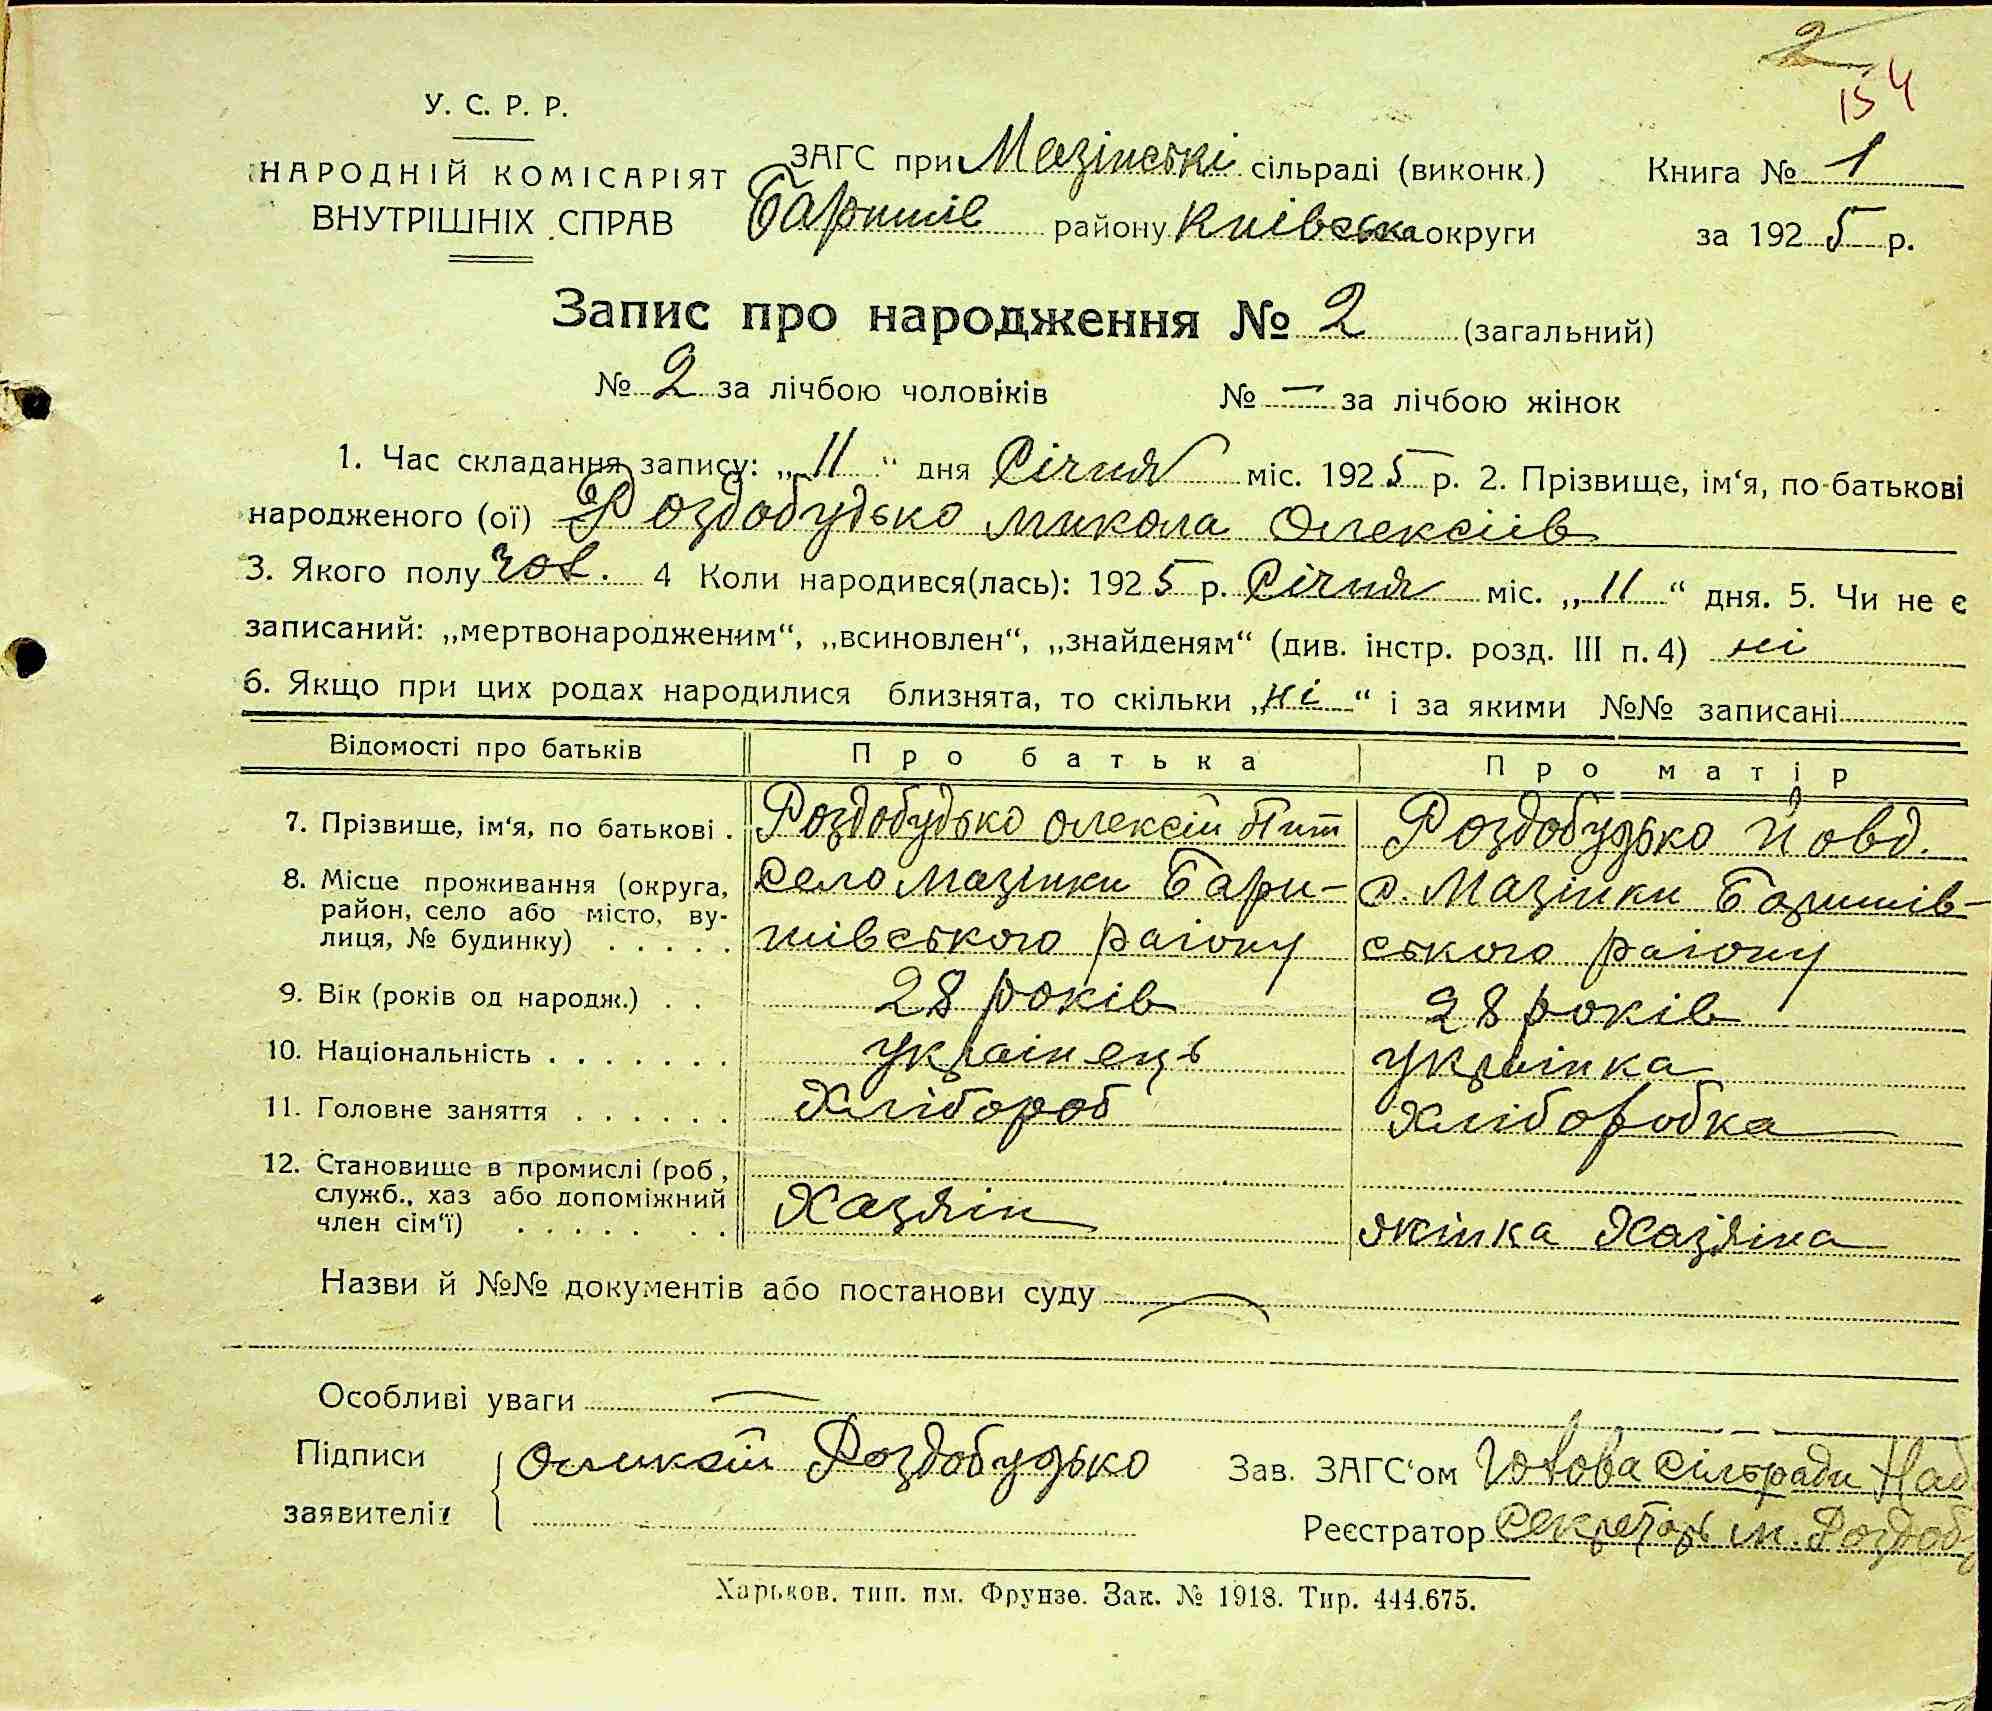 2
154
У. С. Р. Р.
НАРОДНІЙ КОМІСАРІЯТ
ВНУТРІШНІХ СПРАВ
ЗАГС при Мазінські сільраді (виконк.)
Баришів району Київська округи
Книга № 1
за 1925 р.
Запис про народження № 2 (загальний)
№ 2 за лічбою чоловіків № — за лічбою жінок
1. Час складання запису: „11" дня Січня міс. 1925 р. 2. Прізвище, ім'я, по-батькові
народженого (ої) Роздобудько микола Олексіів
3. Якого полу чол. 4 Коли народився(лась): 1925 р. Січня міс. „11" дня. 5. Чи не є
записаний: „мертвонародженим", „всиновлен", „знайденям" (див. інстр. розд. III п. 4) ні
6. Якщо при цих родах народилися близнята, то скільки „ні" і за якими №№ записані
Відомості про батьків Про батька Про матір
7. Прізвище, ім'я, по батькові . Роздобудько олексій Пит Роздобудько Йовд.
8. Місце проживання (округа, село мазінки Бари- с. Мазінки Баришів-
район, село або місто, ву-
лиця, № будинку) . . . . . шівського раіону ського раіону
9. Вік (років од народж.) . . 28 років 28 років
10. Національність . . . . . . . украінець украінка
11. Головне заняття . . . . . . Хлібороб Хліборобка
12. Становище в промислі (роб,
служб., хаз або допоміжний Хазяін жінка Хазяіна
член сім'ї) . . . . . . .
Назви й №№ документів або постанови суду —
Особливі уваги —
Підписи
заявителів
Оликсій Роздобудько
Зав. ЗАГС'ом Голова сільради Наб
Реєстратор Секретарь м. Роздоб
Харьков. тип. им. Фрунзе. Зак. № 1918. Тир. 444.675.